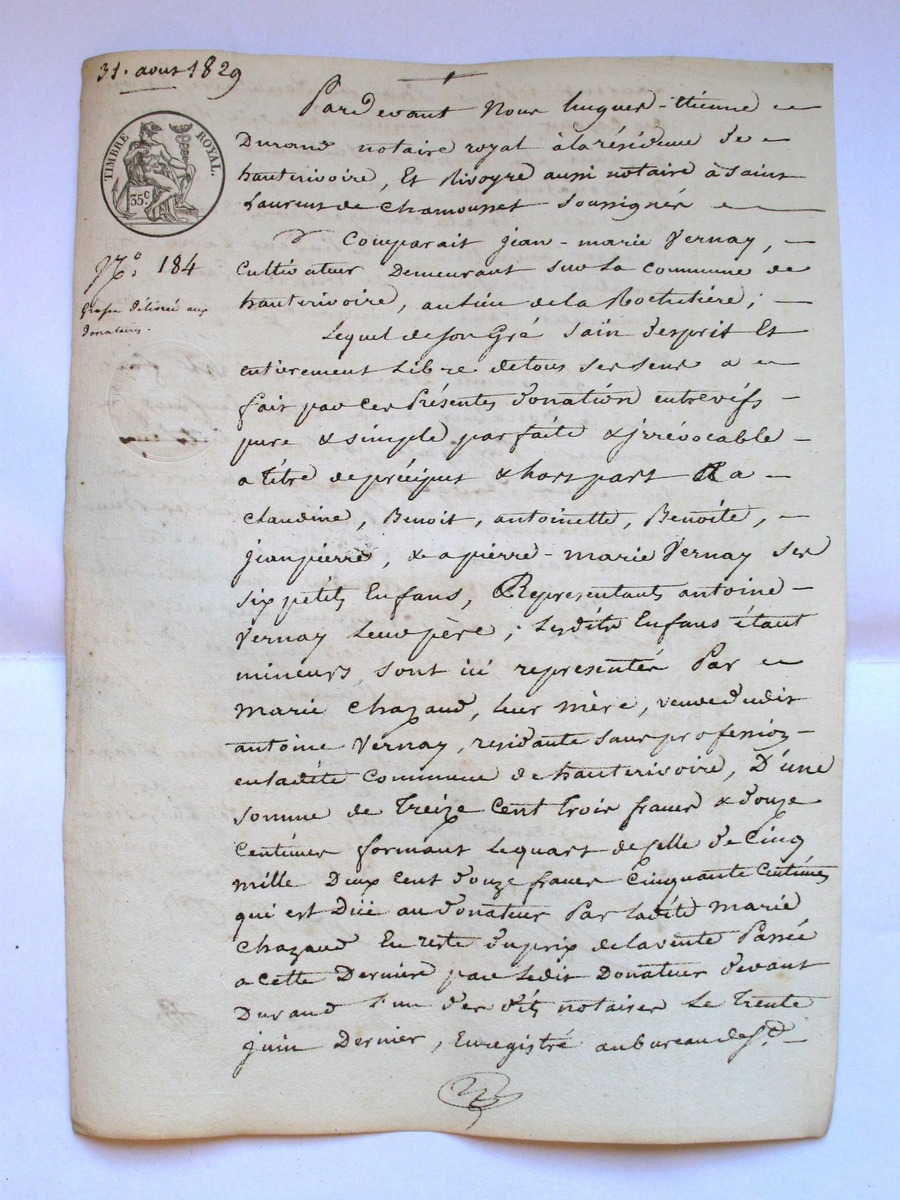 31. aout 1829
TIMBRE ROYAL.
35c
No. 184
Grosse délivrée aux
donataires.
Pardevant Nous hugues-étienne
Durand notaire royal à la résidence de
hauterivoire, Et Rivoyre aussi notaire à Saint
Laurent de Chamousset soussignés
Comparait jean-marie Vernay,
Cultivateur Demeurant sur la commune de
hauterivoire, au lieu de la Rochetière;
Lequel de son Gré sain d'esprit Et
entierement Libre de tous ses sens a
fait par ces Présentes donation entrevifs
pure & simple parfaite & irrévocable
a titre de préciput & hors part a
Claudine, Benoit, antoinette, Benoite,
jean pierre, & a pierre-marie Vernay ses
six petits Enfans, Representants antoine
Vernay Leur père; Lesdits Enfans étant
mineurs, sont ici representés Par
Marie Chazaud, leur mère, veuve dudit
antoine Vernay, residante sans profession
en ladite Commune de hauterivoire, D'une
somme de Treize Cent trois francs & douze
Centimes formant Le quart de celle de Cinq
mille Deux cent douze francs Cinquante Centimes
qui est Düe au donateur Par ladite Marie
Chazaud En reste du prix de la vente Passée
a cette Derniere par Ledit Donateur devant
Durand l'un des dits notaires Le Trente
juin Dernier, Enregistré au bureau de St